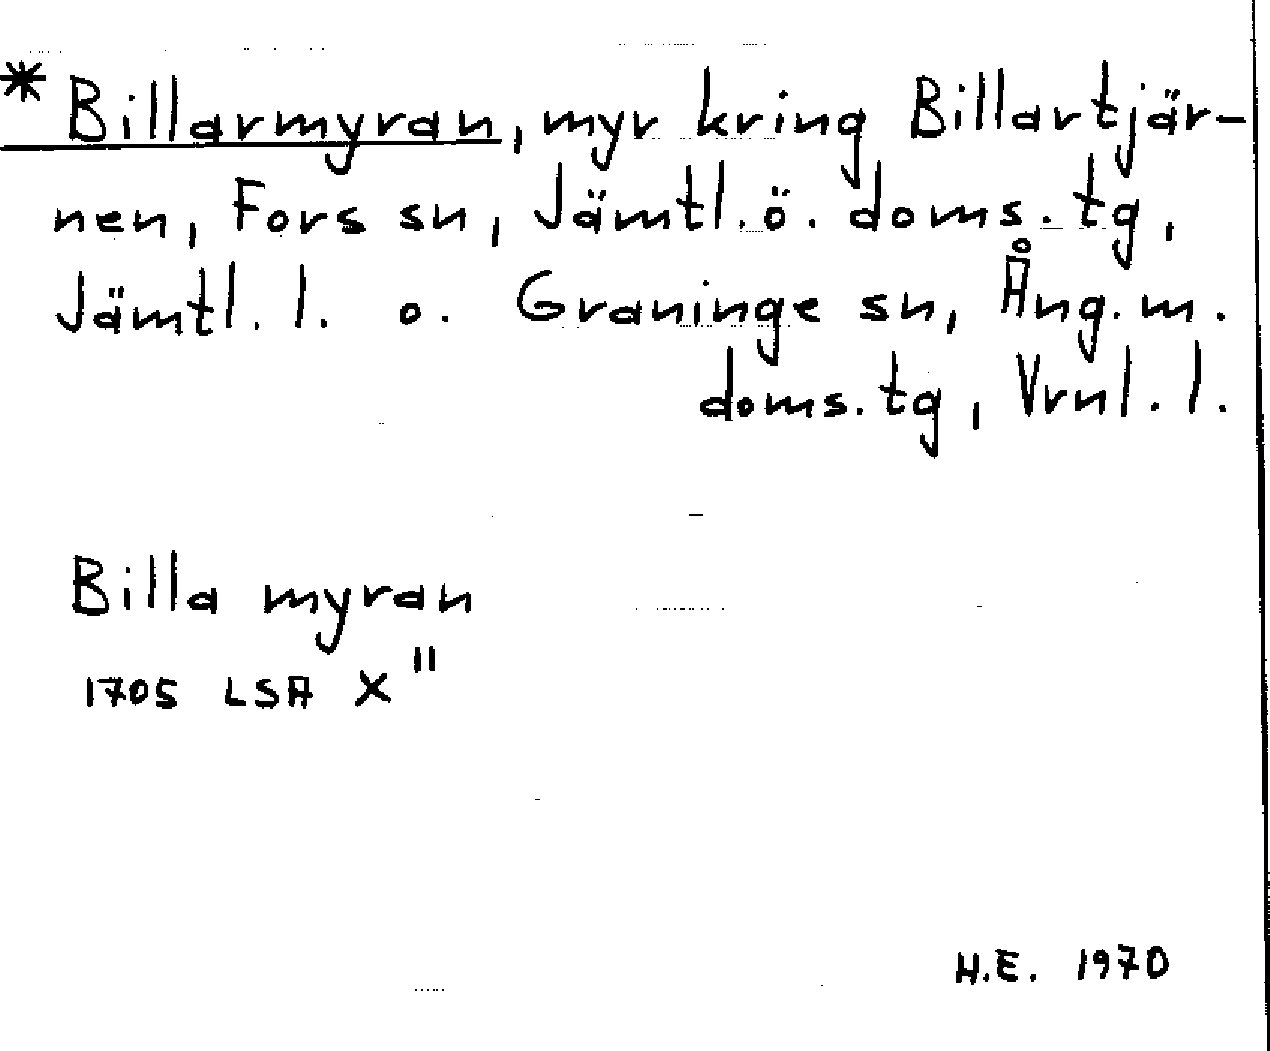 * Billarmyran, myr kring Billartjär-
nen, Fors sn, Jämtl. ö. doms. tg,
Jämtl. l. o. Graninge sn, Ång. m.
doms. tg, Vrnl. l.
Billa myran
1705 LSA X"
H.E. 1970